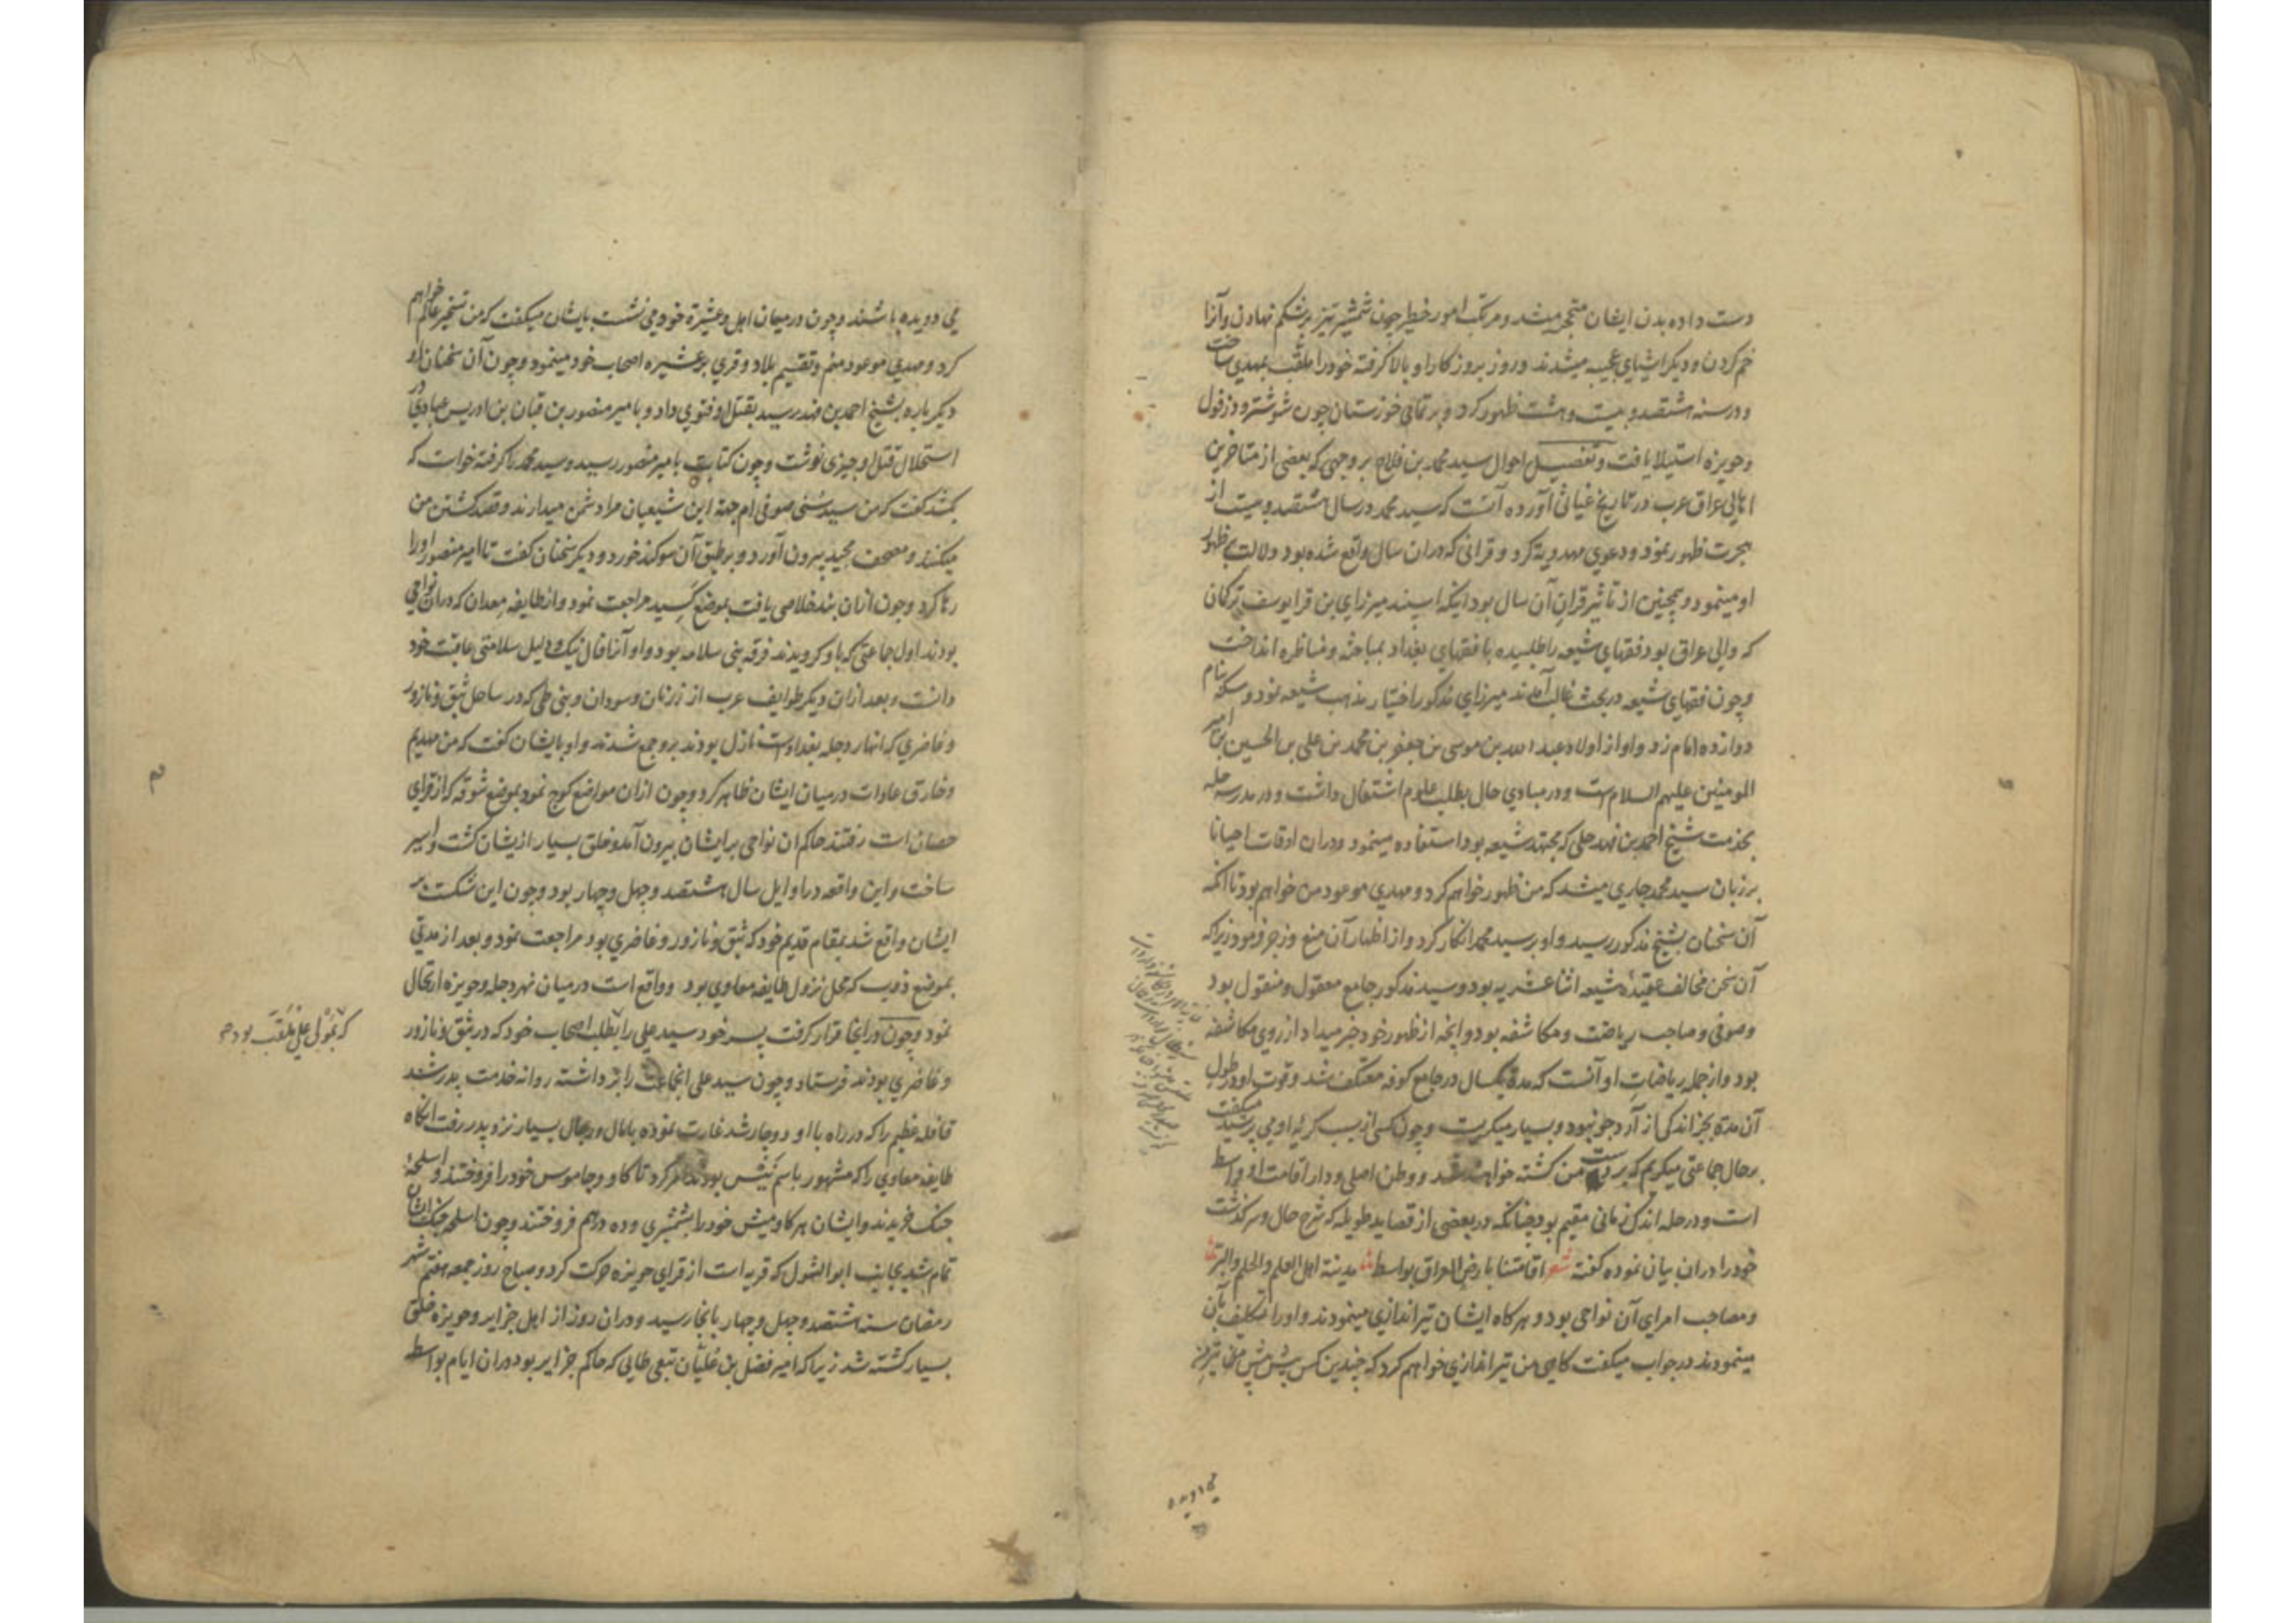 دست داده بدن ایشان متحجر میشد و مرتکب امور خطیر چون شمشیر تیز بر شکم نهادن و آنرا
خم کردن و دیگر اشیای عجیبه میشدند و روز بروز کار او بالا گرفته خود را ملقب بمهدی ساخت
و در سنه هشتصد و بیست و هشت ظهور کرد و بر تمامی خوزستان چون شوشتر و دزفول
و حویزه استیلا یافت و تفصیل احوال سید محمد بن فلاح بر وجهی که بعضی از متاخرین
اهالی عراق عرب در تاریخ غیاثی آورده آنست که سید محمد در سال هشتصد و بیست از
هجرت ظهور نمود و دعوی مهدویة کرد و قرانی که دران سال واقع شده بود دلالت بر ظهور
او مینمود و همچنین از تاثیر قران آن سال بود اینکه اسپند میرزای بن قرا یوسف ترکمان
که والی عراق بود فقهای شیعه را طلبیده با فقهای بغداد بمباحثه و مناظره انداخت
و چون فقهای شیعه در بحث غالب آمدند میرزای مذکور اختیار مذهب شیعه نمود و سکه بنام
دوازده امام زد و او از اولاد عبد الله بن موسی بن جعفر بن محمد بن علی بن الحسین بن امیر
المومنین علیهم السلام است و در مبادی حال بطلب علوم اشتغال داشت و در مدرسه حله
بخدمت شیخ احمد بن فهد حلی که مجتهد شیعه بود استفاده مینمود و دران اوقات احیانا
بر زبان سید محمد جاری میشد که من ظهور خواهم کرد و مهدی موعود من خواهم بود تا آنکه
آن سخنان بشیخ مذکور رسید و او بر سید محمد انکار کرد و از اظهار آن منع و زجر فرمود زیرا که
آن سخن مخالف عقیدۀ شیعه اثنا عشریه بود و سید مذکور جامع معقول و منقول بود
و صوفی و صاحب ریاضت و مکاشفه بود و آنچه از ظهور خود خبر میداد از روی مکاشفه
بود و از جمله ریاضات او آنست که مدة یکسال در جامع کوفه معتکف شد و قوت او در طول
آن مدة بجز اندکی از آرد جو نبود و بسیار میگریست و چون کسی از سبب گریۀ او می پرسید میگفت
بر حال جماعتی میگریم که بر دست من کشته خواهند شد و وطن اصلی و دار اقامت او واسط
است و در حله اندک زمانی مقیم بود چنانکه در بعضی از قصاید طویله که شرح حال و سرگذشت
خود را دران بیان نموده گفته شعر اقامتنا بارض العراق بواسط مدینة اهل العلم والحلم والبر
و مصاحب امرای آن نواحی بود و هرگاه ایشان تیراندازی مینمودند و او را تکلیف بآن
مینمودند در جواب میگفت گاهی من تیراندازی خواهم کرد که چندین کس پیش پیش من تیر
می دویده
می دویده باشند و چون در میان اهل و عشیرة خود می نشست بایشان میگفت که من تسخیر عالم خواهم
کرد و مهدی موعود منم و تقسیم بلاد و قری بر عشیره اصحاب خود مینمود و چون آن سخنان او
دیگر باره بشیخ احمد بن فهد رسید بقتل او فتوی داد و بامیر منصور بن قبان بن ادریس عبادی در
استحلال قتل او چیزی نوشت و چون کتابت بامیر منصور رسید و سید محمد را گرفته خواست که
بکشد گفت که من سید سنی صوفی ام جهة این شیعیان مرا دشمن میدارند و قصد کشتن من
میکنند و مصحف مجید بیرون آورد و بر طبق آن سوگند خورد و دیگر سخنان گفت تا امیر منصور او را
رها کرد و چون ازان بند خلاصی یافت بموضع کسید مراجعت نمود و از طایفه معدان که دران نواحی
بودند اول جماعتی که باو گرویدند فرقه بنی سلامه بود و او آنرا فال نیک و دلیل سلامتی عاقبت خود
دانست و بعد ازان دیگر طوایف عرب از زنان و سودان و بنی طی که در ساحل ثبق و نازور
و غاضری که انهار دجله بغداد است نازل بودند برو جمع شدند و او بایشان گفت که من مهدیم
و خارق عادات در میان ایشان ظاهر کرد و چون ازان مواضع کوچ نمود بموضع شوقه که از قرای
حصان است رفتند حاکم ان نواحی بر ایشان بیرون آمد و خلق بسیار ازیشان کشت و اسیر
ساخت و این واقعه در اوایل سال هشتصد و چهل و چهار بود و چون این شکست بر
ایشان واقع شد بمقام قدیم خود که ثبق و نازور و غاضری بود مراجعت نمود و بعد از مدتی
بموضع ذوب که محل نزول طایفه معاوی بود و واقع است در میان نهر دجله و حویزه ارتحال
نمود و چون در انجا قرار گرفت پسر خود سید علی را بطلب اصحاب خود که در ثبق و نازور
که بمولی علی ملقب بود
و غاضری بودند فرستاد و چون سید علی انجماعت را برداشته روانه خدمت پدر شد
قافله عظیم را که در راه با او دوچار شد غارت نموده بامال و رجال بسیار نزد پدر رفت آنگاه
طایفه معاوی را که مشهور باسم نیس بودند امر کرد تا گاو و جاموس خود را فروختند و اسلحۀ
جنگ خریدند و ایشان هر گاومیش خود را بشمشیری و ده درهم فروختند و چون اسلحه جنگ ایشان
تمام شد بجانب ابو الشول که قریه است از قرای حویزه حرکت کرد و صباح روز جمعه هفتم شهر
رمضان سنه هشتصد و چهل و چهار بانجا رسید و دران روز از اهل جزایر و حویزه خلق
بسیار کشته شد زیرا که امیر فضل بن علیان تبعی طایی که حاکم جزایر بود دران ایام بواسط